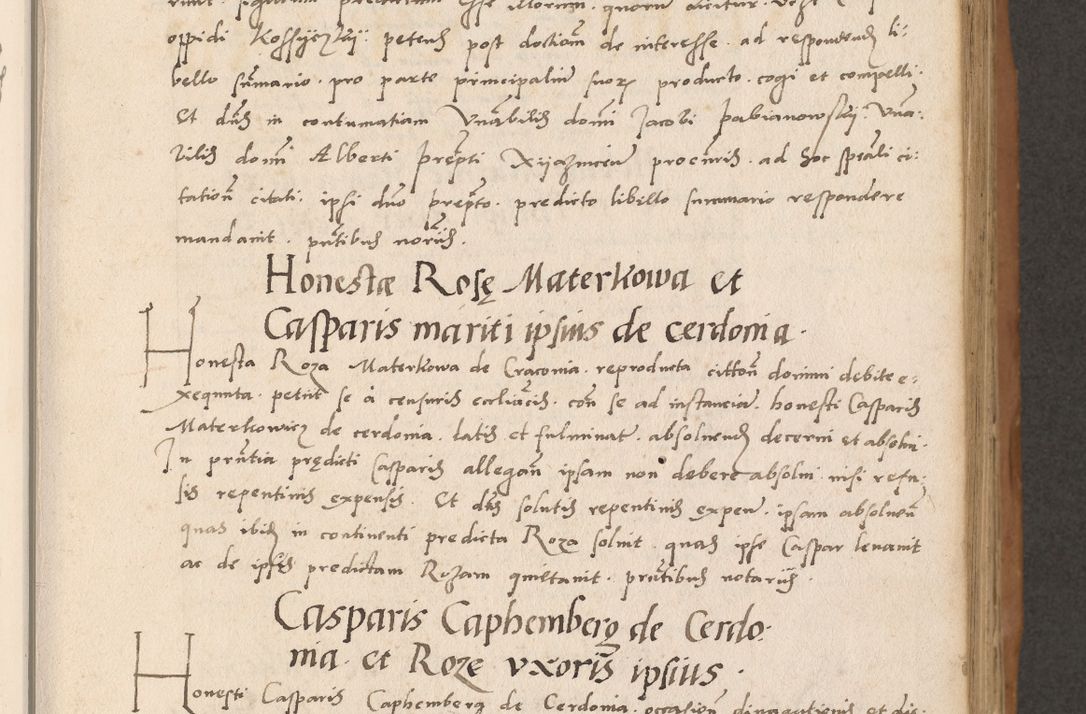 oppidi Kossijczkij petens post dostiam de interesse . ad respondendū li:
bello sūmario . pro parte principaliū suorz producto . cogi et compelli .
Et dnūs in contumatiam Vnābilis domi Jacobi Pabianowskij . Vnā:
bilis domī Alberti prēpti Xijazniceñ procuris . ad hoc spēali ci:
tationē citati . ipsi dūo prēpto . predicto libello summario respondere
mandavit . pntibus notarijs .
Honestæ Rosę Materkowa et
Casparis mariti ipsius de cerdonia .
Honesta Roza Materkowa de Craconia . reproducta cittōn domini debite e:
xequuta . petiit se à censuris eccliācis . cōn se ad instanciam . honesti Casparis
Materkowicz de cerdonia . latis et fulminat . absoluendū decerni et absolui .
In prntia prędicti Casparis allegan ipsam non debere absolui . nisi refu:
sis repentinis expensis . Et dns solutis repentinis expen . ipsam absoluen
quas ibid in continenti predicta Roza soluit . quas ipse Caspar leuauit
ac de ipsis predictam Rozam quietauit . pntibus notarijs .
Casparis Caphemberg de Cerdo:
nia . et Roze vxoris ipsius .
Honesti Casparis Caphemberg de Cerdonia . occasione